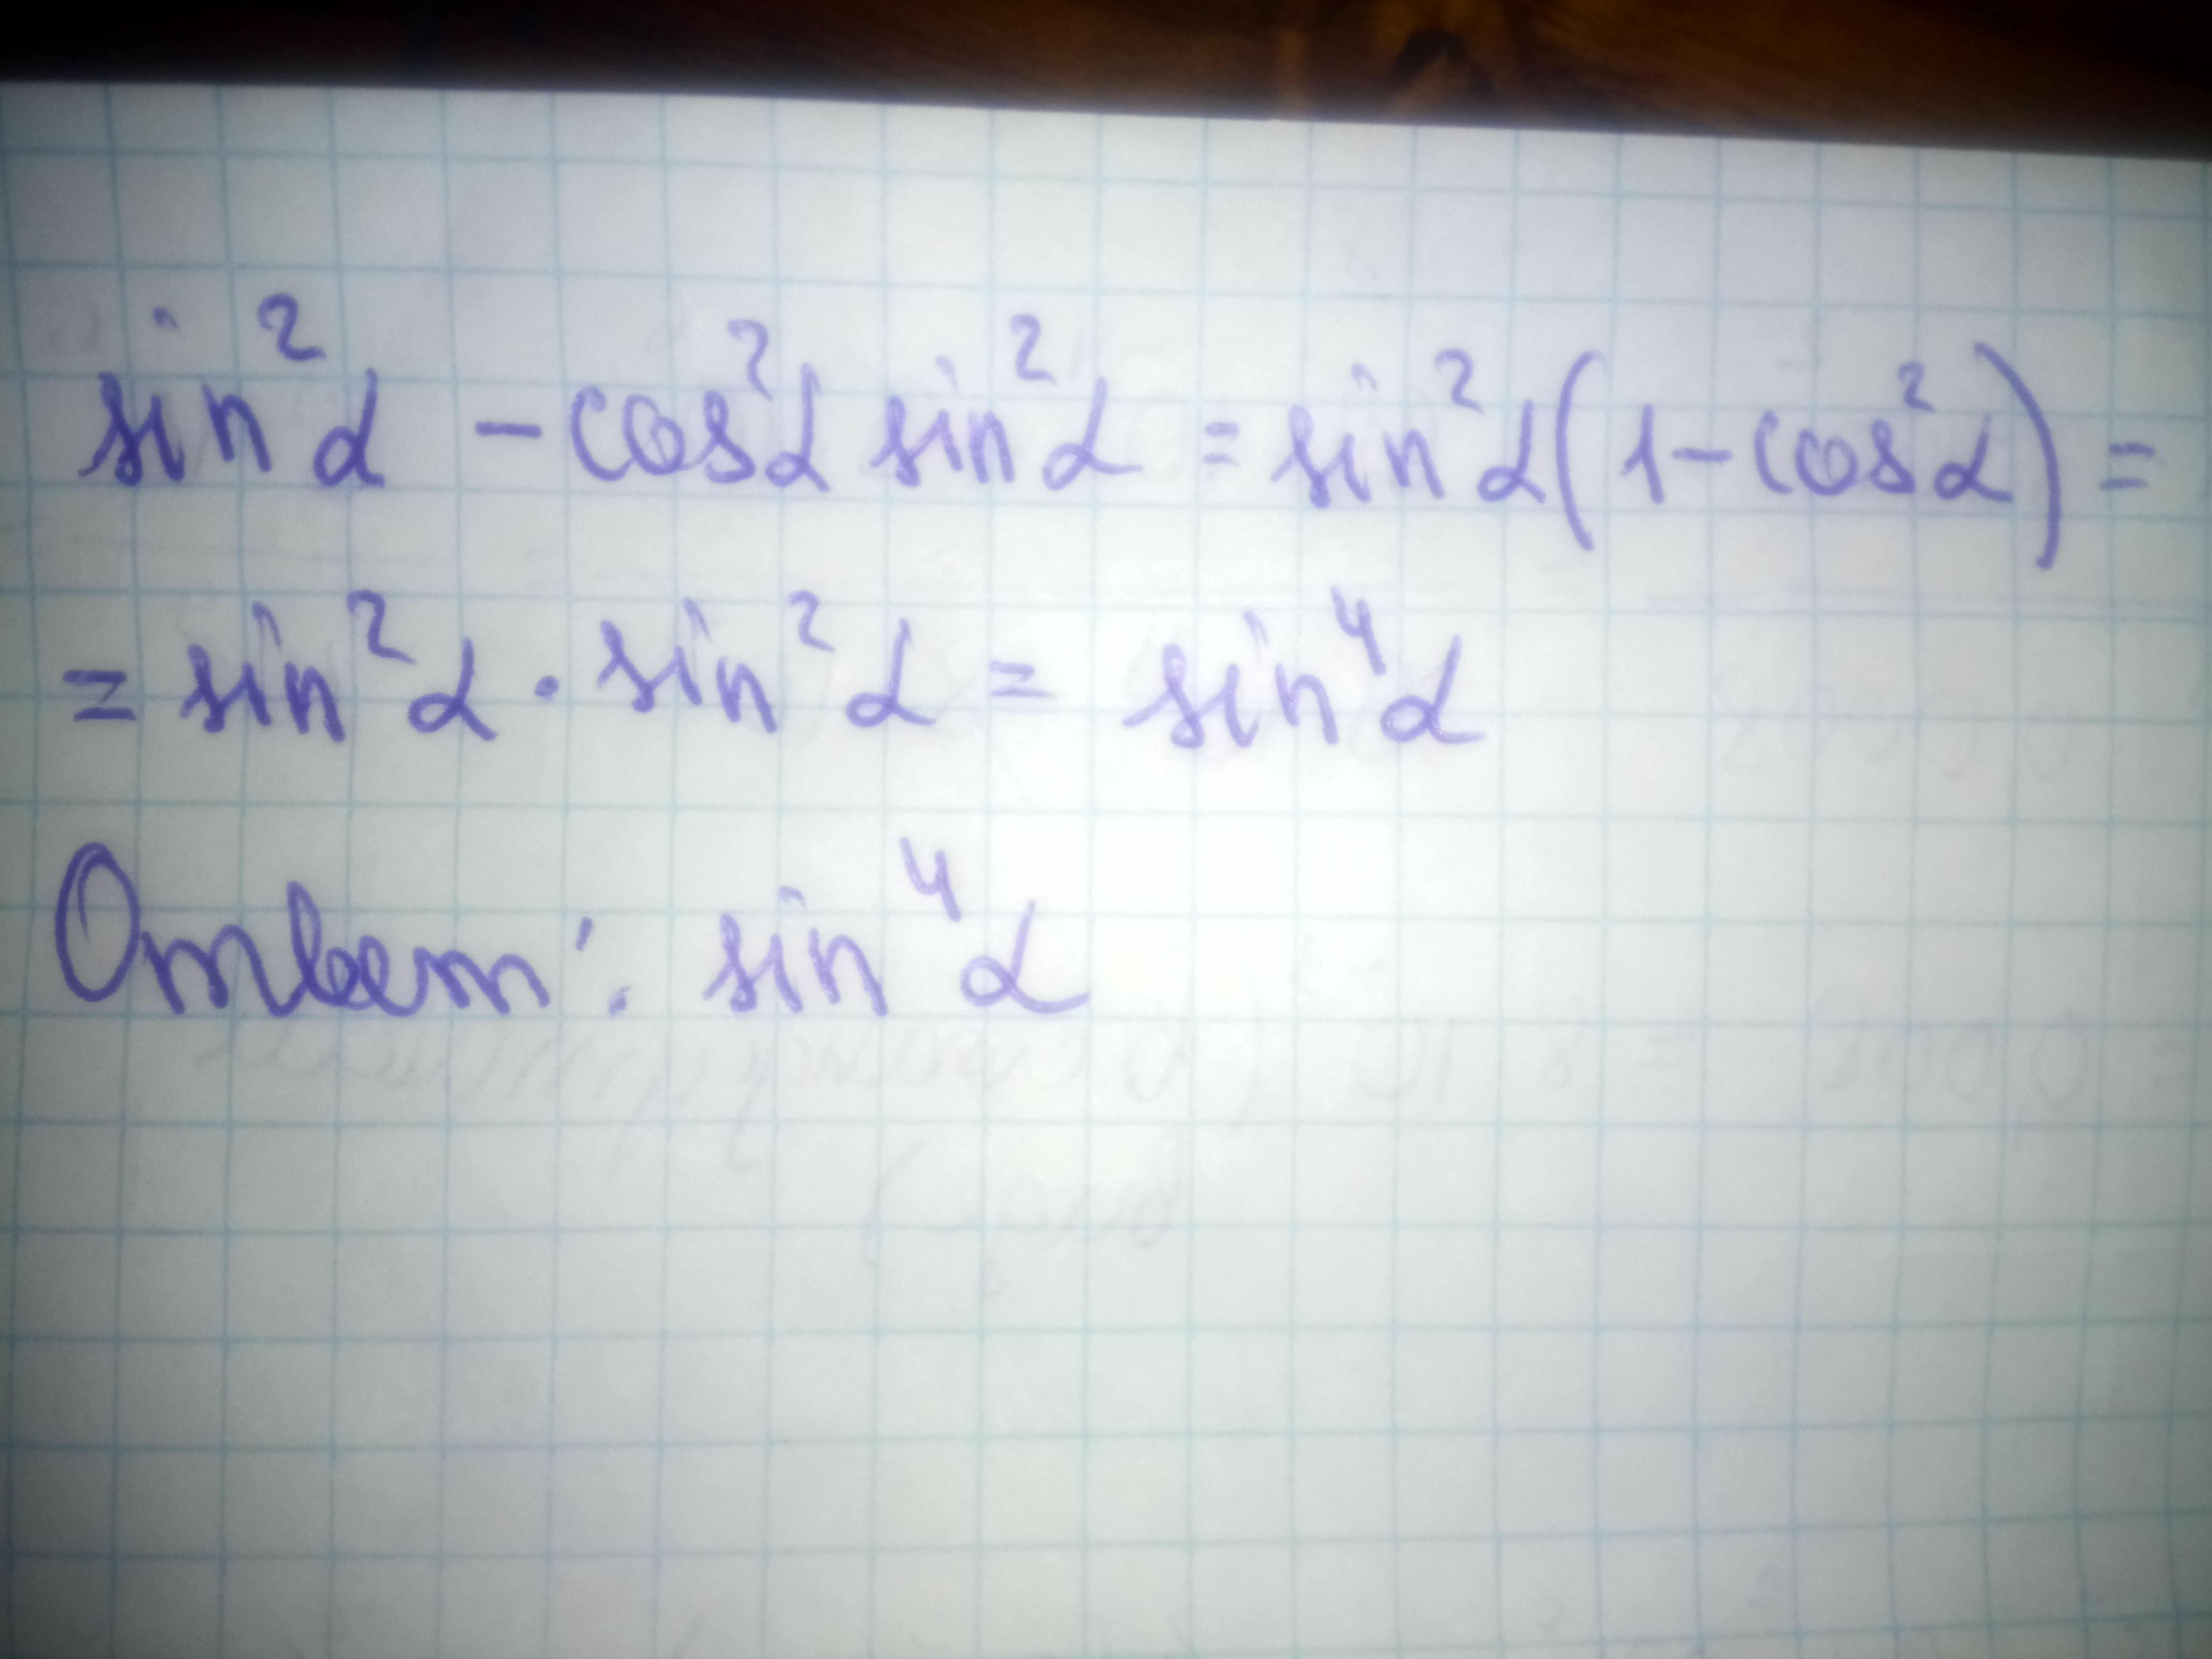 sin²α - cos²α sin²α = sin²α(1 - cos²α) =
= sin²α · sin²α = sin⁴α
Ответ: sin⁴α